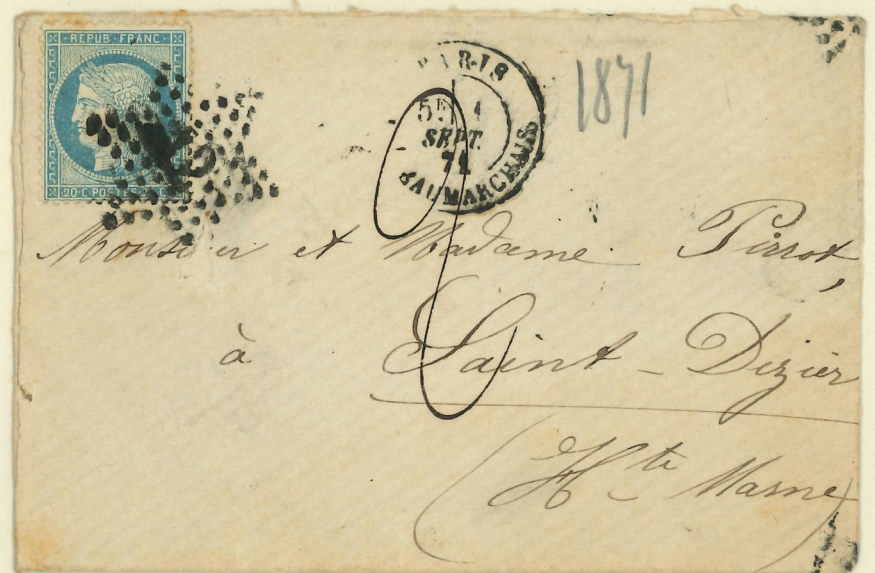 REPUB·FRANC
20·C·POSTES·20·C
PARIS
5E
SEPT.
71
BAUMARCHAIS
1871
Monsieur et Madame Pirrot,
à Saint-Dizier
(Hte Marne)